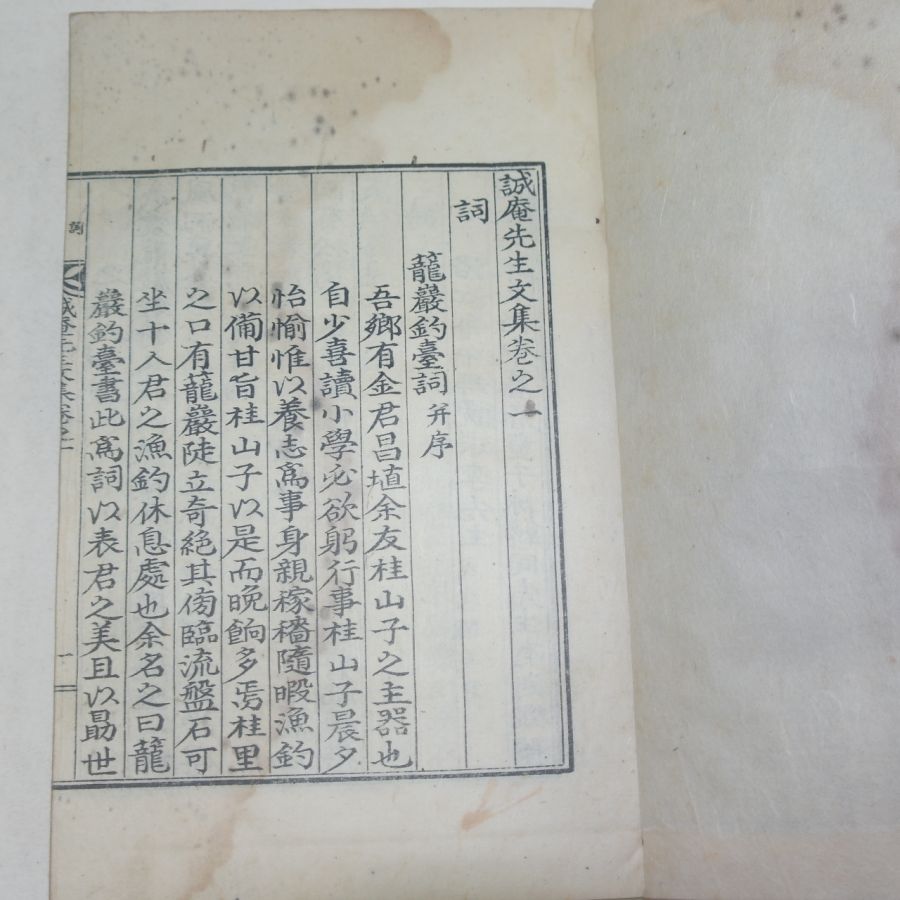 誠庵先生文集卷之一
詞
籠巖釣臺詞 并序
吾鄉有金君昌埴余友桂山子之主器也
自少喜讀小學必欲躬行事桂山子晨夕
怡愉惟以養志爲事身親稼穡隨暇漁釣
以備甘旨桂山子以是而晩餉多焉桂里
之口有籠巖陡立奇絶其傍臨流盤石可
坐十人君之漁釣休息處也余名之曰籠
巖釣臺書此爲詞以表君之美且以勖世
詞
誠庵先生文集卷之一
一